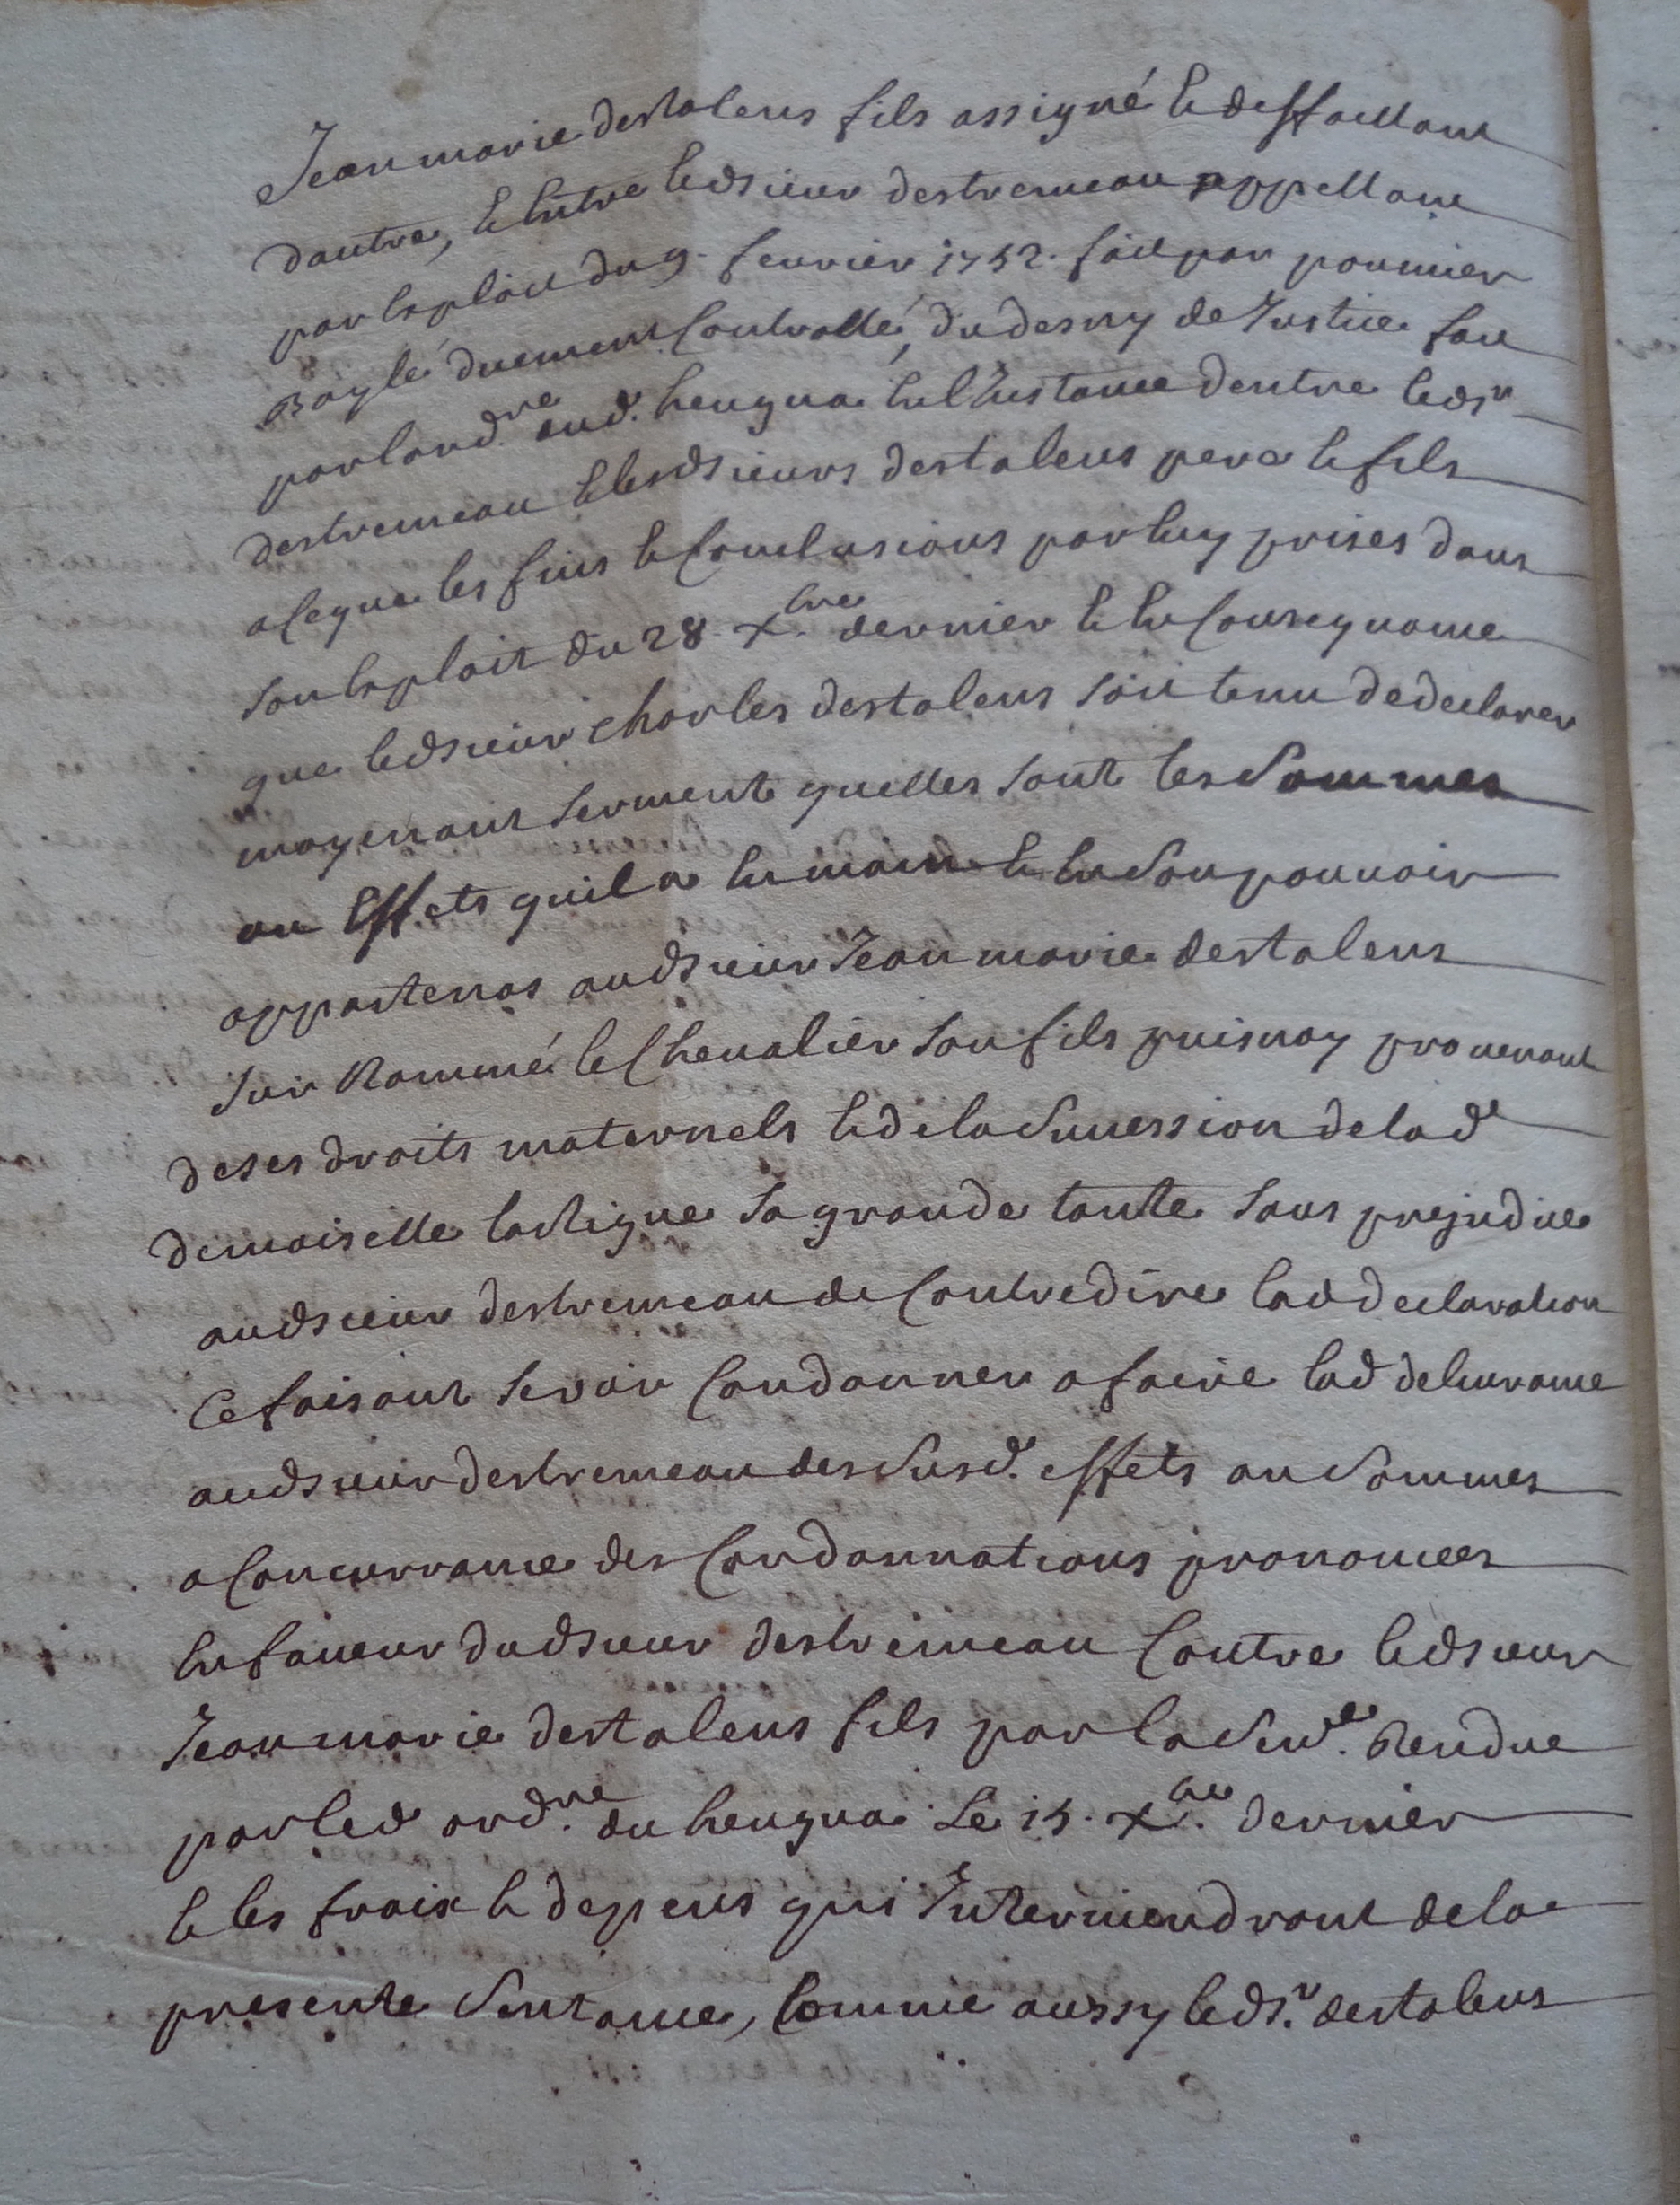 Jean marie destalens fils assigné et deffaillant
dautre, et Entre ledsieur destremeau appellant
par Exploit du 9. feurier 1752. fait par poumier
Bayle duement Controllé, du desny de Justice fait
par lord.re aud. heugua En l'Instance dentre leds.r
destremeau et lesdsieurs destalens pere et fils
a ce que les fins et Conclusions par luy prises dans
son Exploit du 28 x.bre dernier et En Consequance
que ledsieur charles destalens soit tenu de declarer
moyenant serment quelles sont les Sommes
ou Effets quil a En main et En Son pouuoir
appartenas audsieur Jean marie destalens
sur Nommé le Cheualier son fils puisnay prouenant
de ses droits maternels et de la Sucession de lad.
demoiselle lartigue sa grande tante sans prejudice
audsieur destremeau de Contredire lad declaration
Ce faisant se voir Condanner a faire lad deliurance
audsieur destremeau des Susd. effets ou Sommes
a Concurrance des Condannations prononcees
En faueur dudsieur destremeau Contre ledsieur
Jean marie destalens fils par la Sen.ce Rendue
par led ord.re du heugua Le 15. x.bre dernier
et les fraix et depens qui Interviendront de la
presente Sentance, Comme aussy leds.r destalens